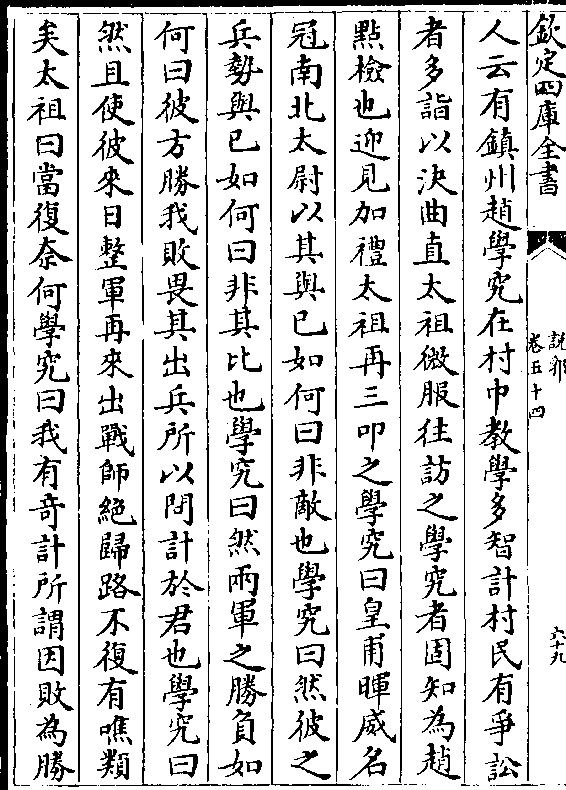 欽定四庫全書
說郛
卷五十四
六十九
人云有鎮州趙學究在村中教學多智計村民有爭訟
者多詣以決曲直太祖微服往訪之學究者固知為趙
點檢也迎見加禮太祖再三叩之學究曰皇甫暉威名
冠南北太尉以其與已如何曰非敵也學究曰然彼之
兵勢與已如何曰非其比也學究曰然兩軍之勝負如
何曰彼方勝我敗畏其出兵所以問計於君也學究曰
然且使彼來日整軍再來出戰師絕歸路不復有噍類
矣太祖曰當復奈何學究曰我有奇計所謂因敗為勝